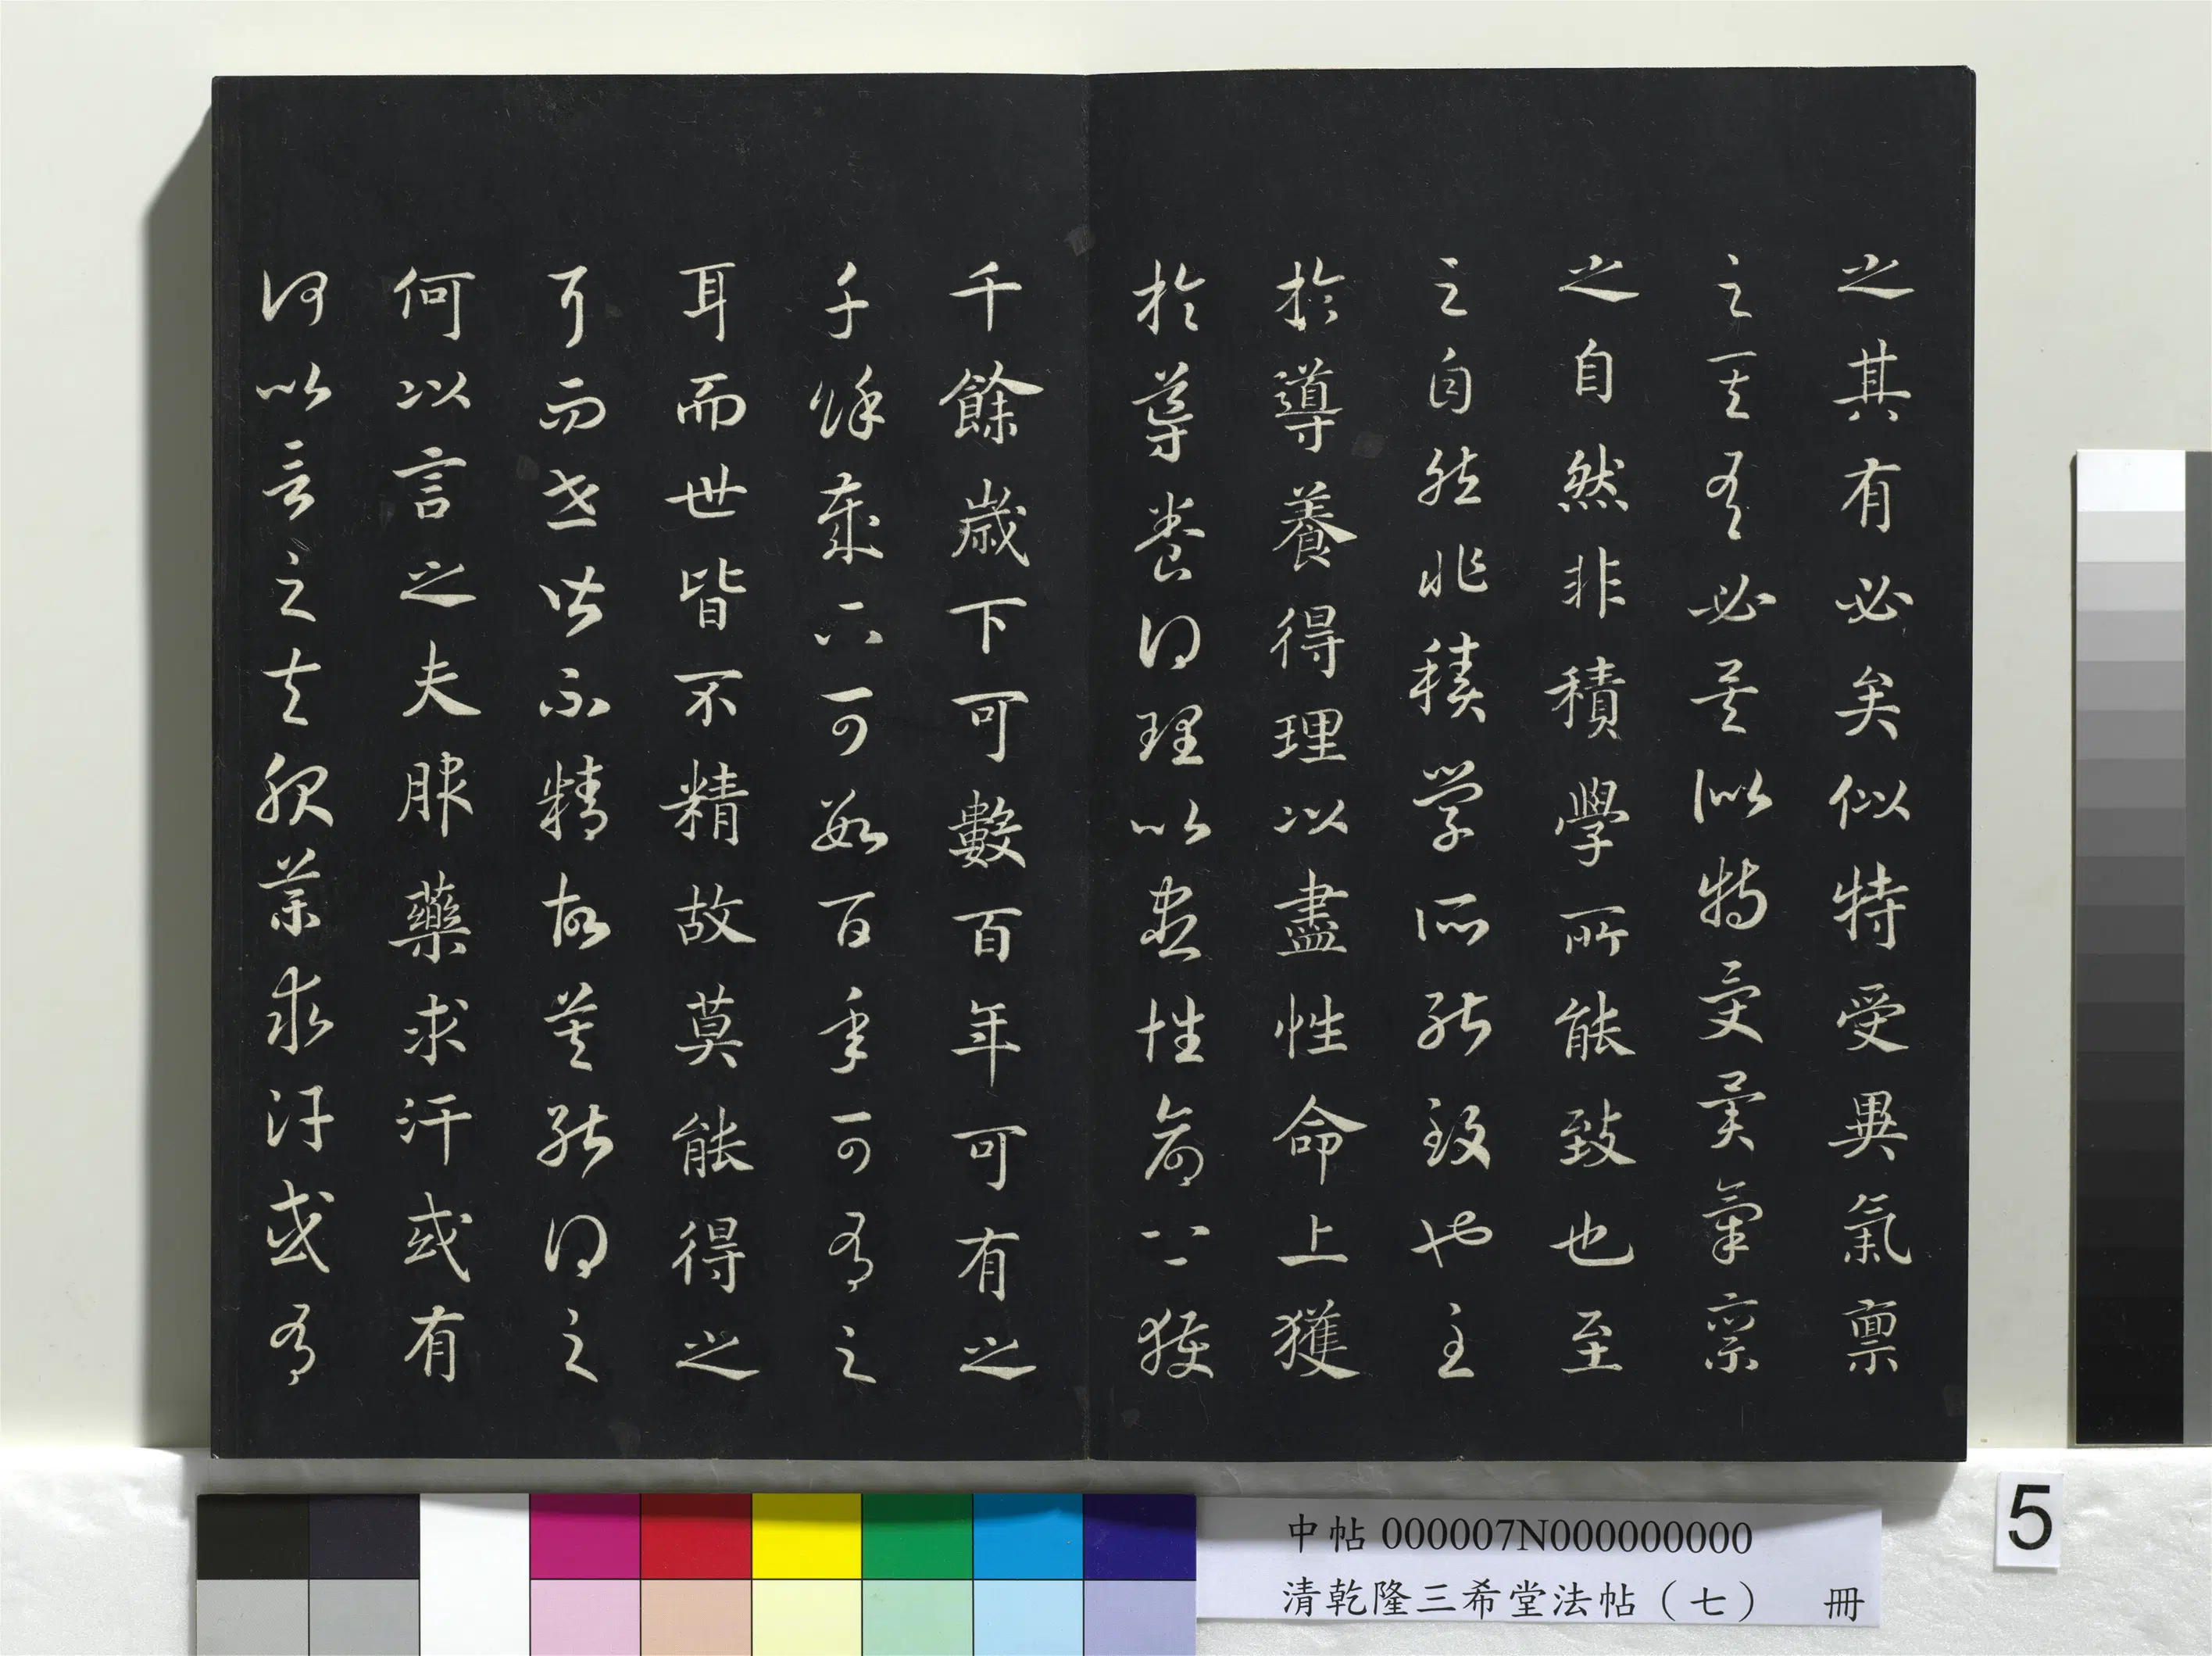 之其有必矣似特受異氣禀
之其有必矣似特受異氣禀
之自然非積學所能致也至
之自然非積學所能致也至
於導養得理以盡性命上獲
於導養得理以盡性命上獲
千餘歲下可數百年可有之
千餘歲下可數百年可有之
耳而世皆不精故莫能得之
耳而世皆不精故莫能得之
何以言之夫服藥求汗或有
何以言之夫服藥求汗或有
中帖 000007N000000000
清乾隆三希堂法帖（七） 冊
5